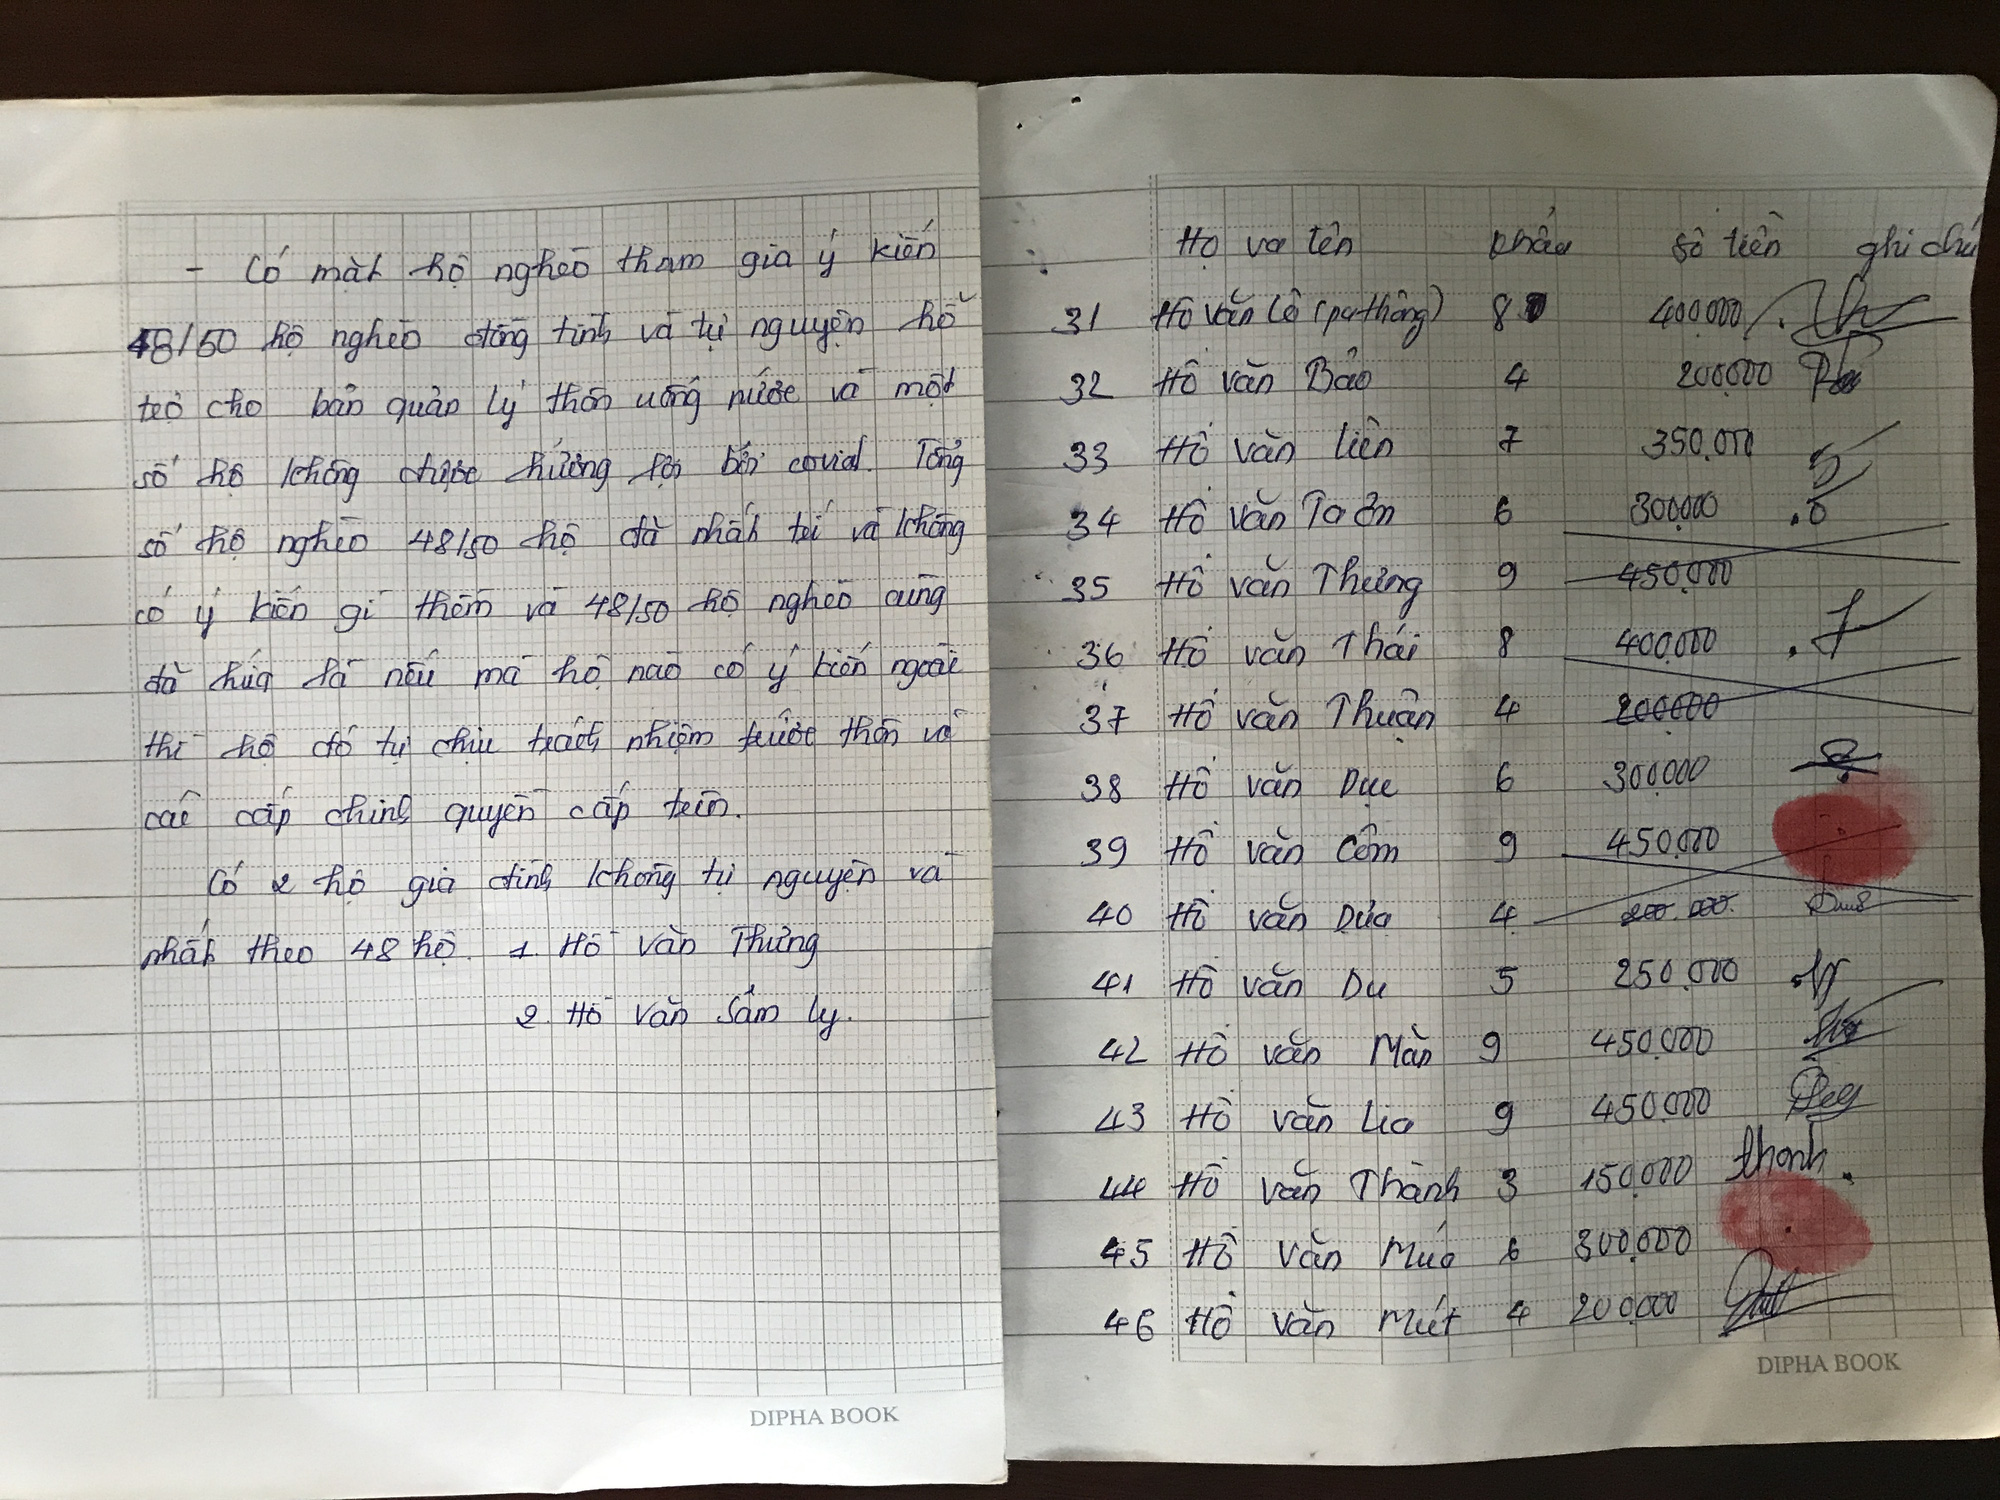 - Có mặt hộ nghèo tham gia ý kiến
48/50 hộ nghèo đồng tình và tự nguyện hỗ
trợ cho bản quản lý thôn uống nước và một
số hộ không được hưởng lợi bởi covid. Tổng
số hộ nghèo 48/50 hộ đã nhất trí và không
có ý kiến gì thêm và 48/50 hộ nghèo cũng
đã hứa là nếu mà hộ nào có ý kiến ngoài
thì hộ đó tự chịu trách nhiệm trước thôn và
các cấp chính quyền cấp trên.
Có 2 hộ gia đình không tự nguyện và
nhất theo 48 hộ. 1. Hồ Văn Thưng
2. Hồ Văn Sầm ly.
DIPHA BOOK
Họ va tên khẩu số tiền ghi chú
31 Hồ Văn Lê (pa thông) 8 400.000
32 Hồ Văn Bảo 4 200.000
33 Hồ Văn liên 7 350.000
34 Hồ Văn Ta ơn 6 300.000
35 Hồ Văn Thưng 9 450.000
36 Hồ Văn Thái 8 400.000
37 Hồ Văn Thuận 4 200.000
38 Hồ Văn Dục 6 300.000
39 Hồ Văn Côm 9 450.000
40 Hồ Văn Dứa 4 200.000
41 Hồ Văn Du 5 250.000
42 Hồ Văn Màn 9 450.000
43 Hồ Văn Lia 9 450.000
44 Hồ Văn Thành 3 150.000 thanh
45 Hồ Văn Múa 6 300.000
46 Hồ Văn Mút 4 200.000
DIPHA BOOK